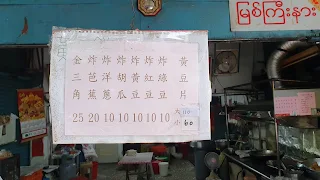 金三角 25
炸芭蕉 20
炸洋蔥 10
炸胡瓜 10
炸黃豆 10
炸紅豆 10
炸綠豆 10
黃豆片
小 60
မြစ်ကြီးနား